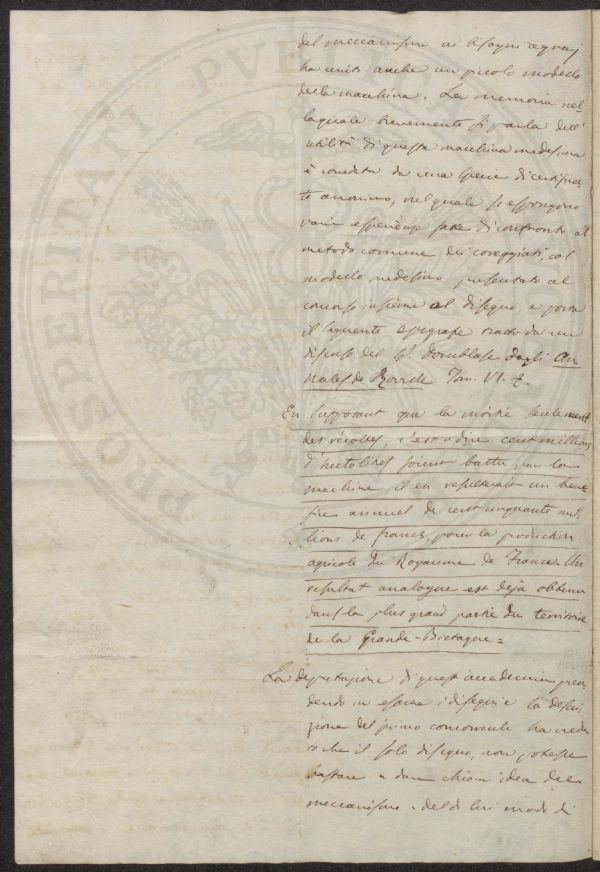 del meccanismo ai bisogni
ha unito anche un piccolo modello
della macchina. La memoria nel-
la quale brevemente si parla dell'
utilità di questa macchina medesima
è corredata da una specie di certifica-
to anonimo, nel quale si espongono
varie esperienze fatte di confronto al
metodo comune dei coreggiati col
modello medesimo presentato al
concorso insieme al disegno, e porta
il seguente epigrafe tratto da un
discorso del Sr. Domblase dagli An-
nales de Tom. VI.
En supposant que la moitié seulement
des récoltes, c'est a dire cent millions
d'hectolitres soient battu par la
machine, il en resulterait un bene-
fice annuel de cent cinquante mil-
lions de francs, pour la production
agricole du Royaume de France. Un
resultat analogue est dejà obtenu
dans la plus grand partie du territoire
de la Grande-Bretagne =
La deputazione di quest'accademia pren-
dendo in esame i disegni e la descri-
zione del primo concorrente ha credu-
to che il solo disegno, non potesse
bastare a dare chiara idea del
meccanismo e del di lui modo di
PROSPERITATI PVBL